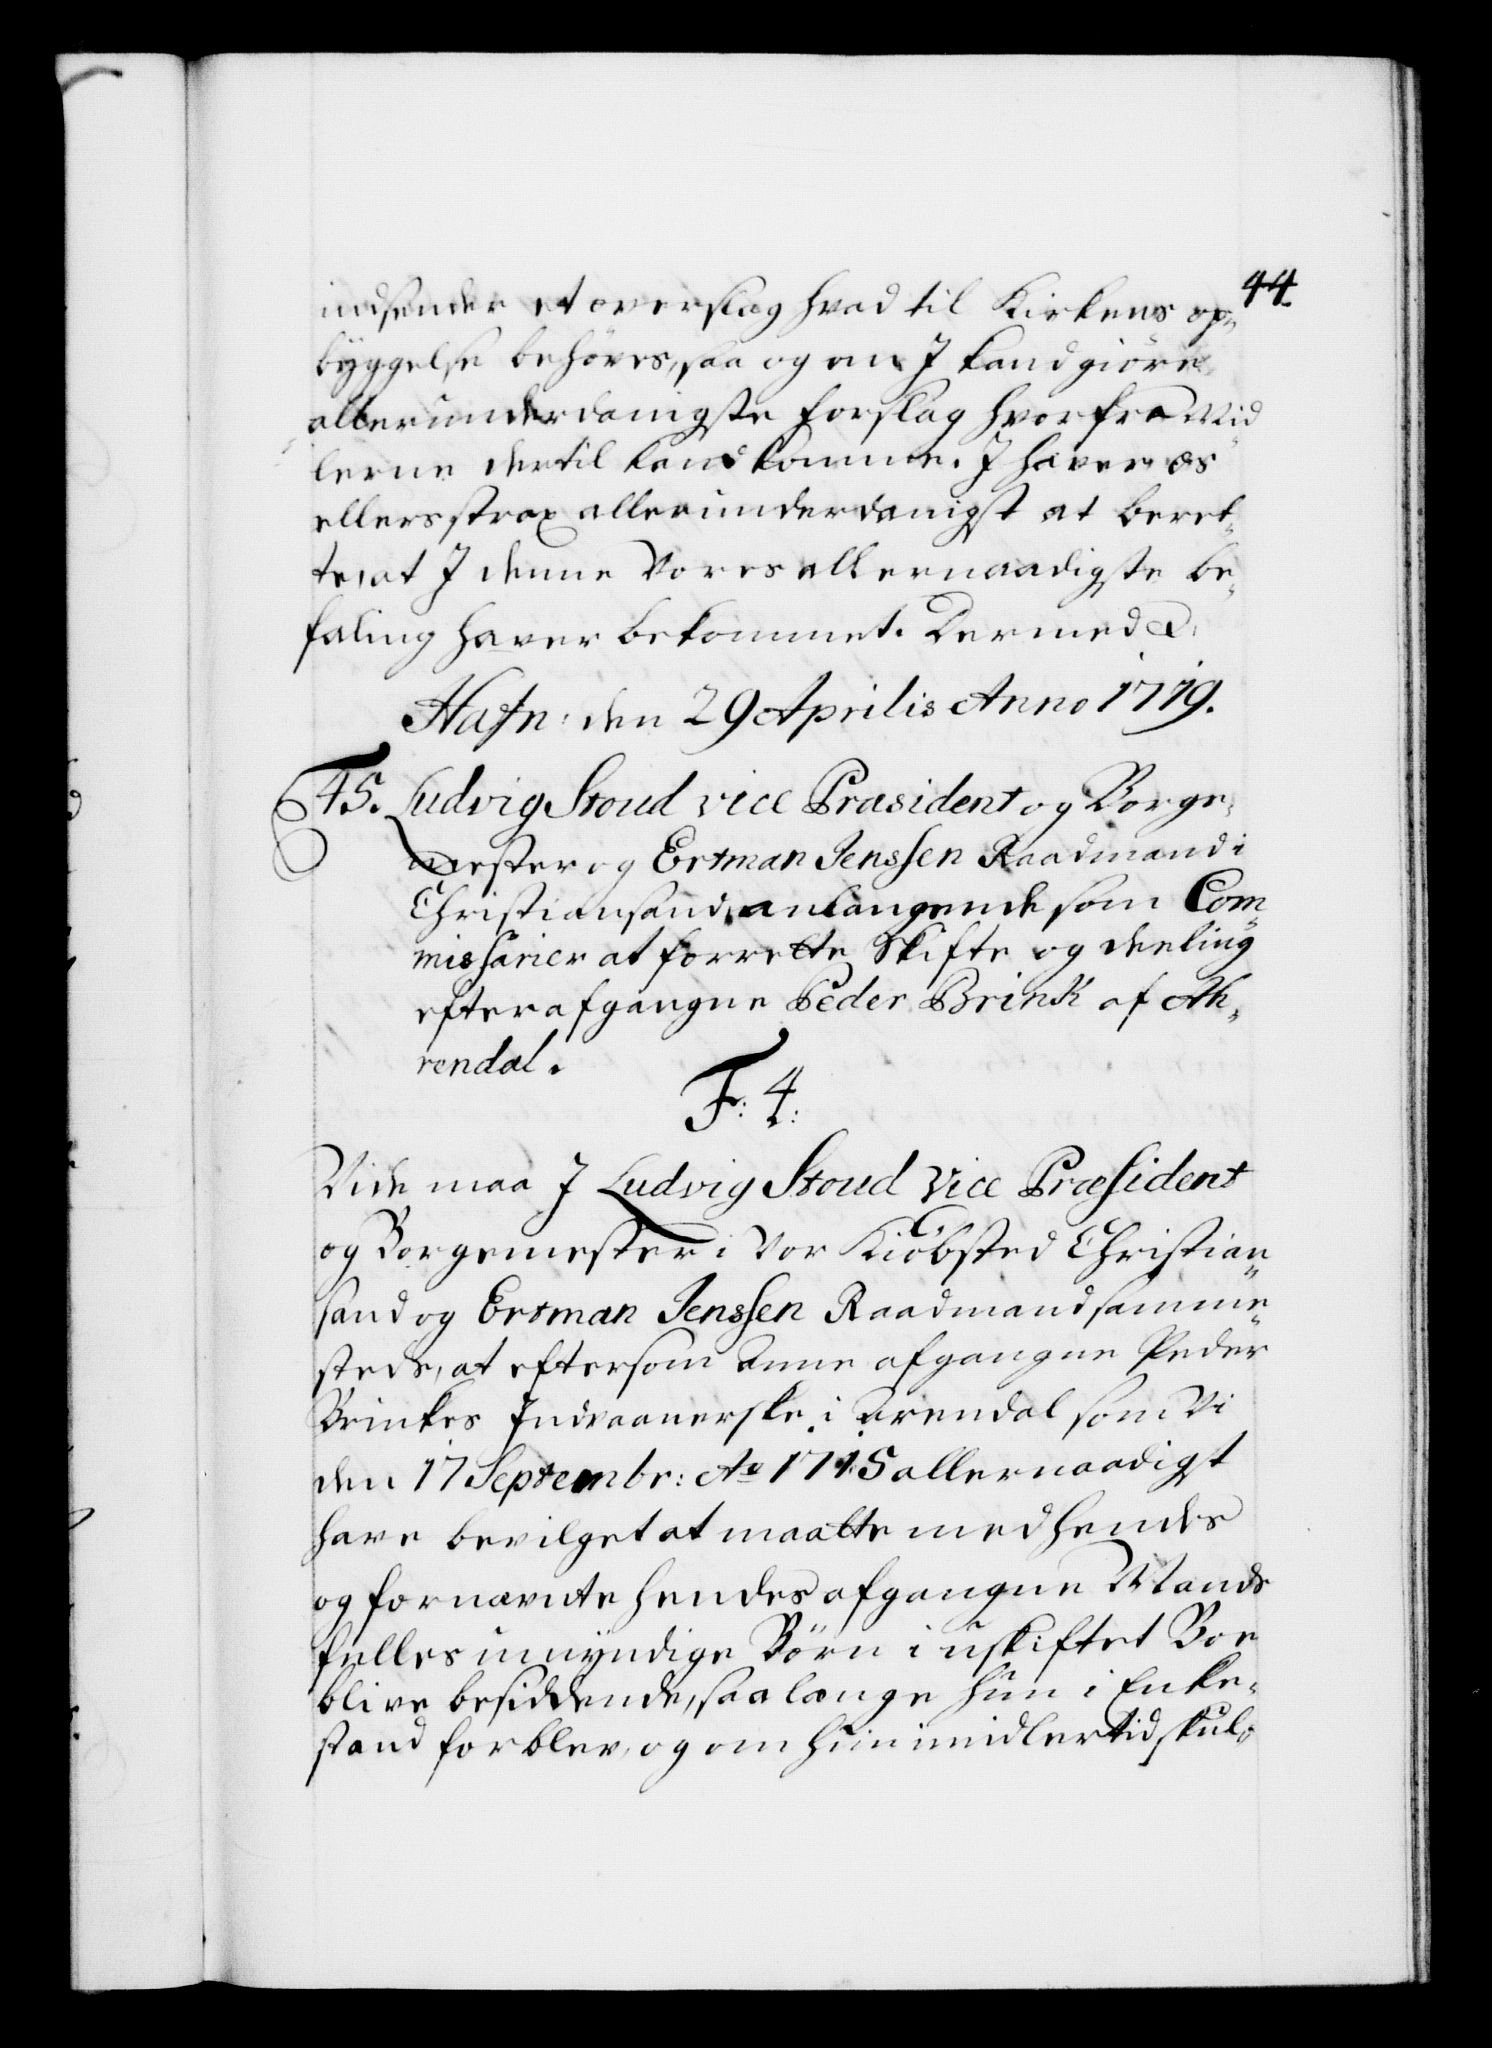 44.
indsender et overslag hvad til Kirkens op-
byggelse behöves, saa og om I kand giöre
allerunderdanigste forslag hvorfra Mid-
lerne dertil kand komme. I haver os
ellers strax allerunderdanigst at beret-
te, at I denne Vores allernaadigste be-
faling haver bekommet. Dermed &.
Hafn: den 29 Aprilis Anno 1719.
45. Ludvig Stoud vice Præsident og Borge-
mester og Ertman Jenssen Raadmand i
Christiansand, anlangende som Com-
missarier at forrette Skifte og deeling
efter afgangne Peder Brink af Ah-
rendal.
F: 4:
Vide maa I Ludvig Stoud Vice Præsident
og Borgemester i Vor Kiöbsted Christian-
sand og Ertman Jenssen Raadmand samme-
steds, at eftersom Anne afgangne Peder
Brinkes Indvaanerske i Arendal som Vi
den 17 Septembr: Ao 1715 allernaadigst
have bevilget at maatte med hendes
og fornævnte hendes afgangne Mands
felles umyndige Börn i uskiftet Boe
blive besiddende, saalænge hun i Enke-
stand forblev, og om hun imidlertid skulde